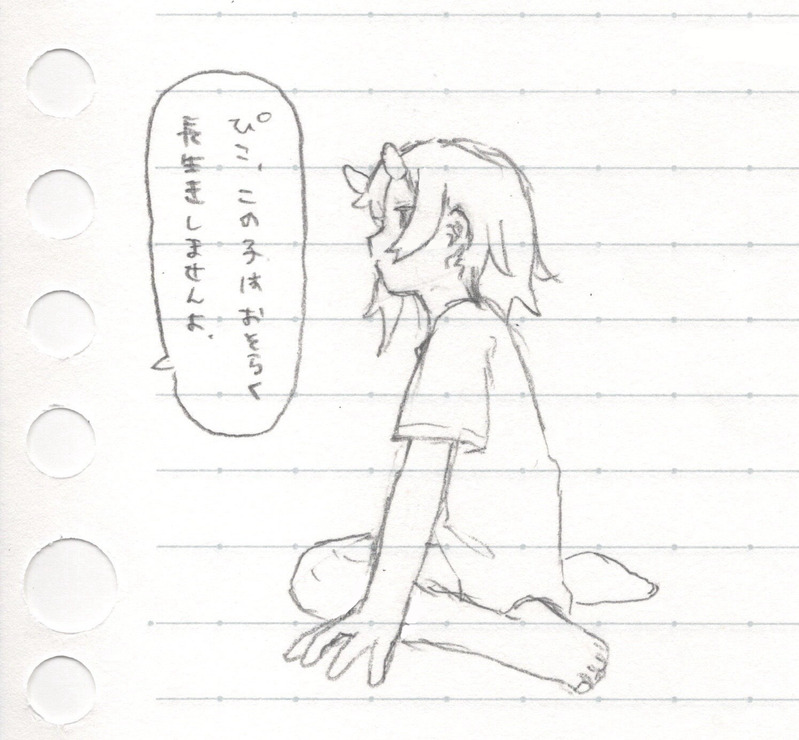 ぴこ、この子はおそらく
長生きしませんよ、